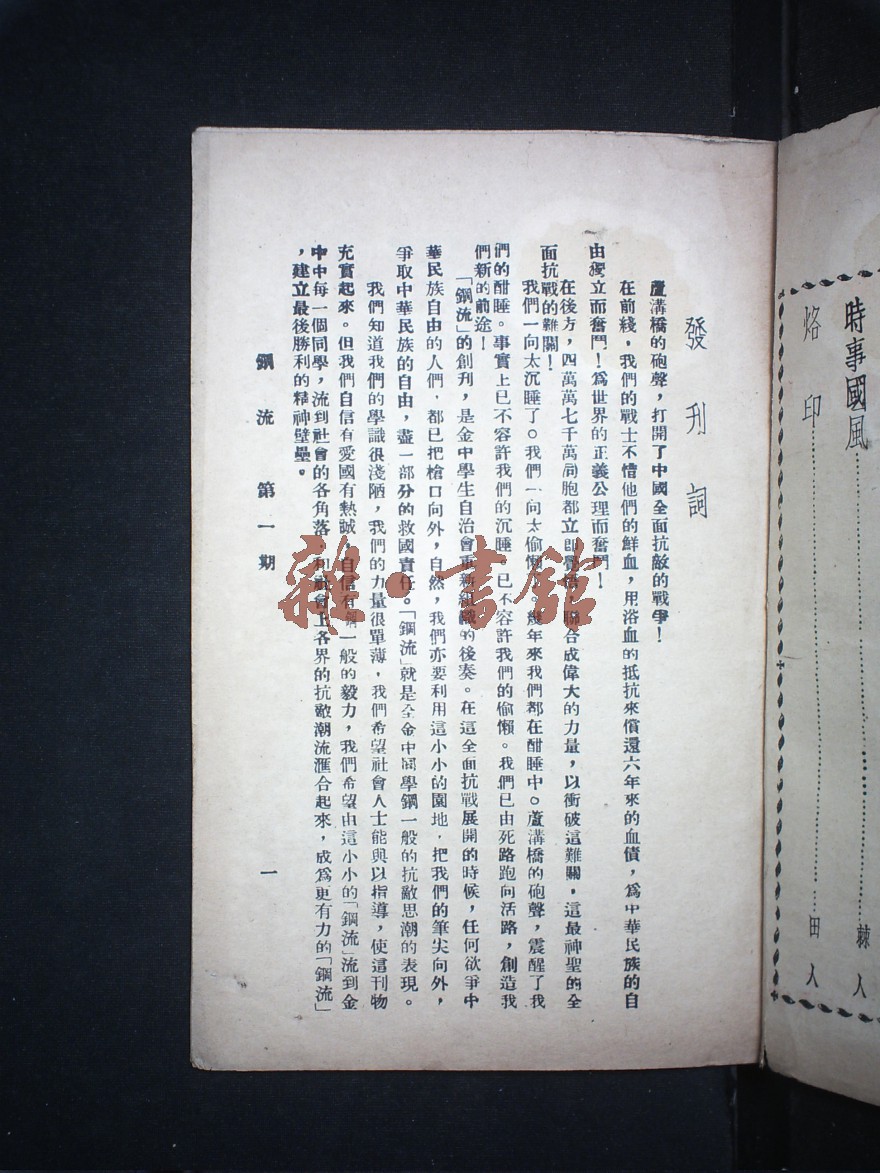 時事國風……棘人
烙印……田人
發刊詞
蘆溝橋的砲聲，打開了中國全面抗敵的戰爭！
在前綫，我們的戰士不惜他們的鮮血，用浴血的抵抗來償還六年來的血債，爲中華民族的自
由獨立而奮鬥！爲世界的正義公理而奮鬥！
在後方，四萬萬七千萬同胞都立即覺悟，聯合成偉大的力量，以衝破這難關，這最神聖的全
面抗戰的難關！
我們一向太沉睡了。我們一向太偷懶了。幾年來我們都在酣睡中。蘆溝橋的砲聲，震醒了我
們的酣睡。事實上已不容許我們的沉睡，已不容許我們的偷懶。我們已由死路跑向活路，創造我
們新的前途！
「鋼流」的創刋，是金中學生自治會重新組織的後奏。在這全面抗戰展開的時候，任何欲爭中
華民族自由的人們，都已把槍口向外，自然，我們亦要利用這小小的園地，把我們的筆尖向外，
爭取中華民族的自由，盡一部分的救國責任。「鋼流」就是全金中同學鋼一般的抗敵思潮的表現。
我們知道我們的學識很淺陋，我們的力量很單薄，我們希望社會人士能與以指導，使這刊物
充實起來。但我們自信有愛國有熱誠，自信有鋼一般的毅力，我們希望由這小小的「鋼流」流到金
中中每一個同學，流到社會的各角落，和社會上各界的抗敵潮流滙合起來，成爲更有力的「鋼流」
，建立最後勝利的精神壁壘。
鋼流 第一期 一
雜·書館